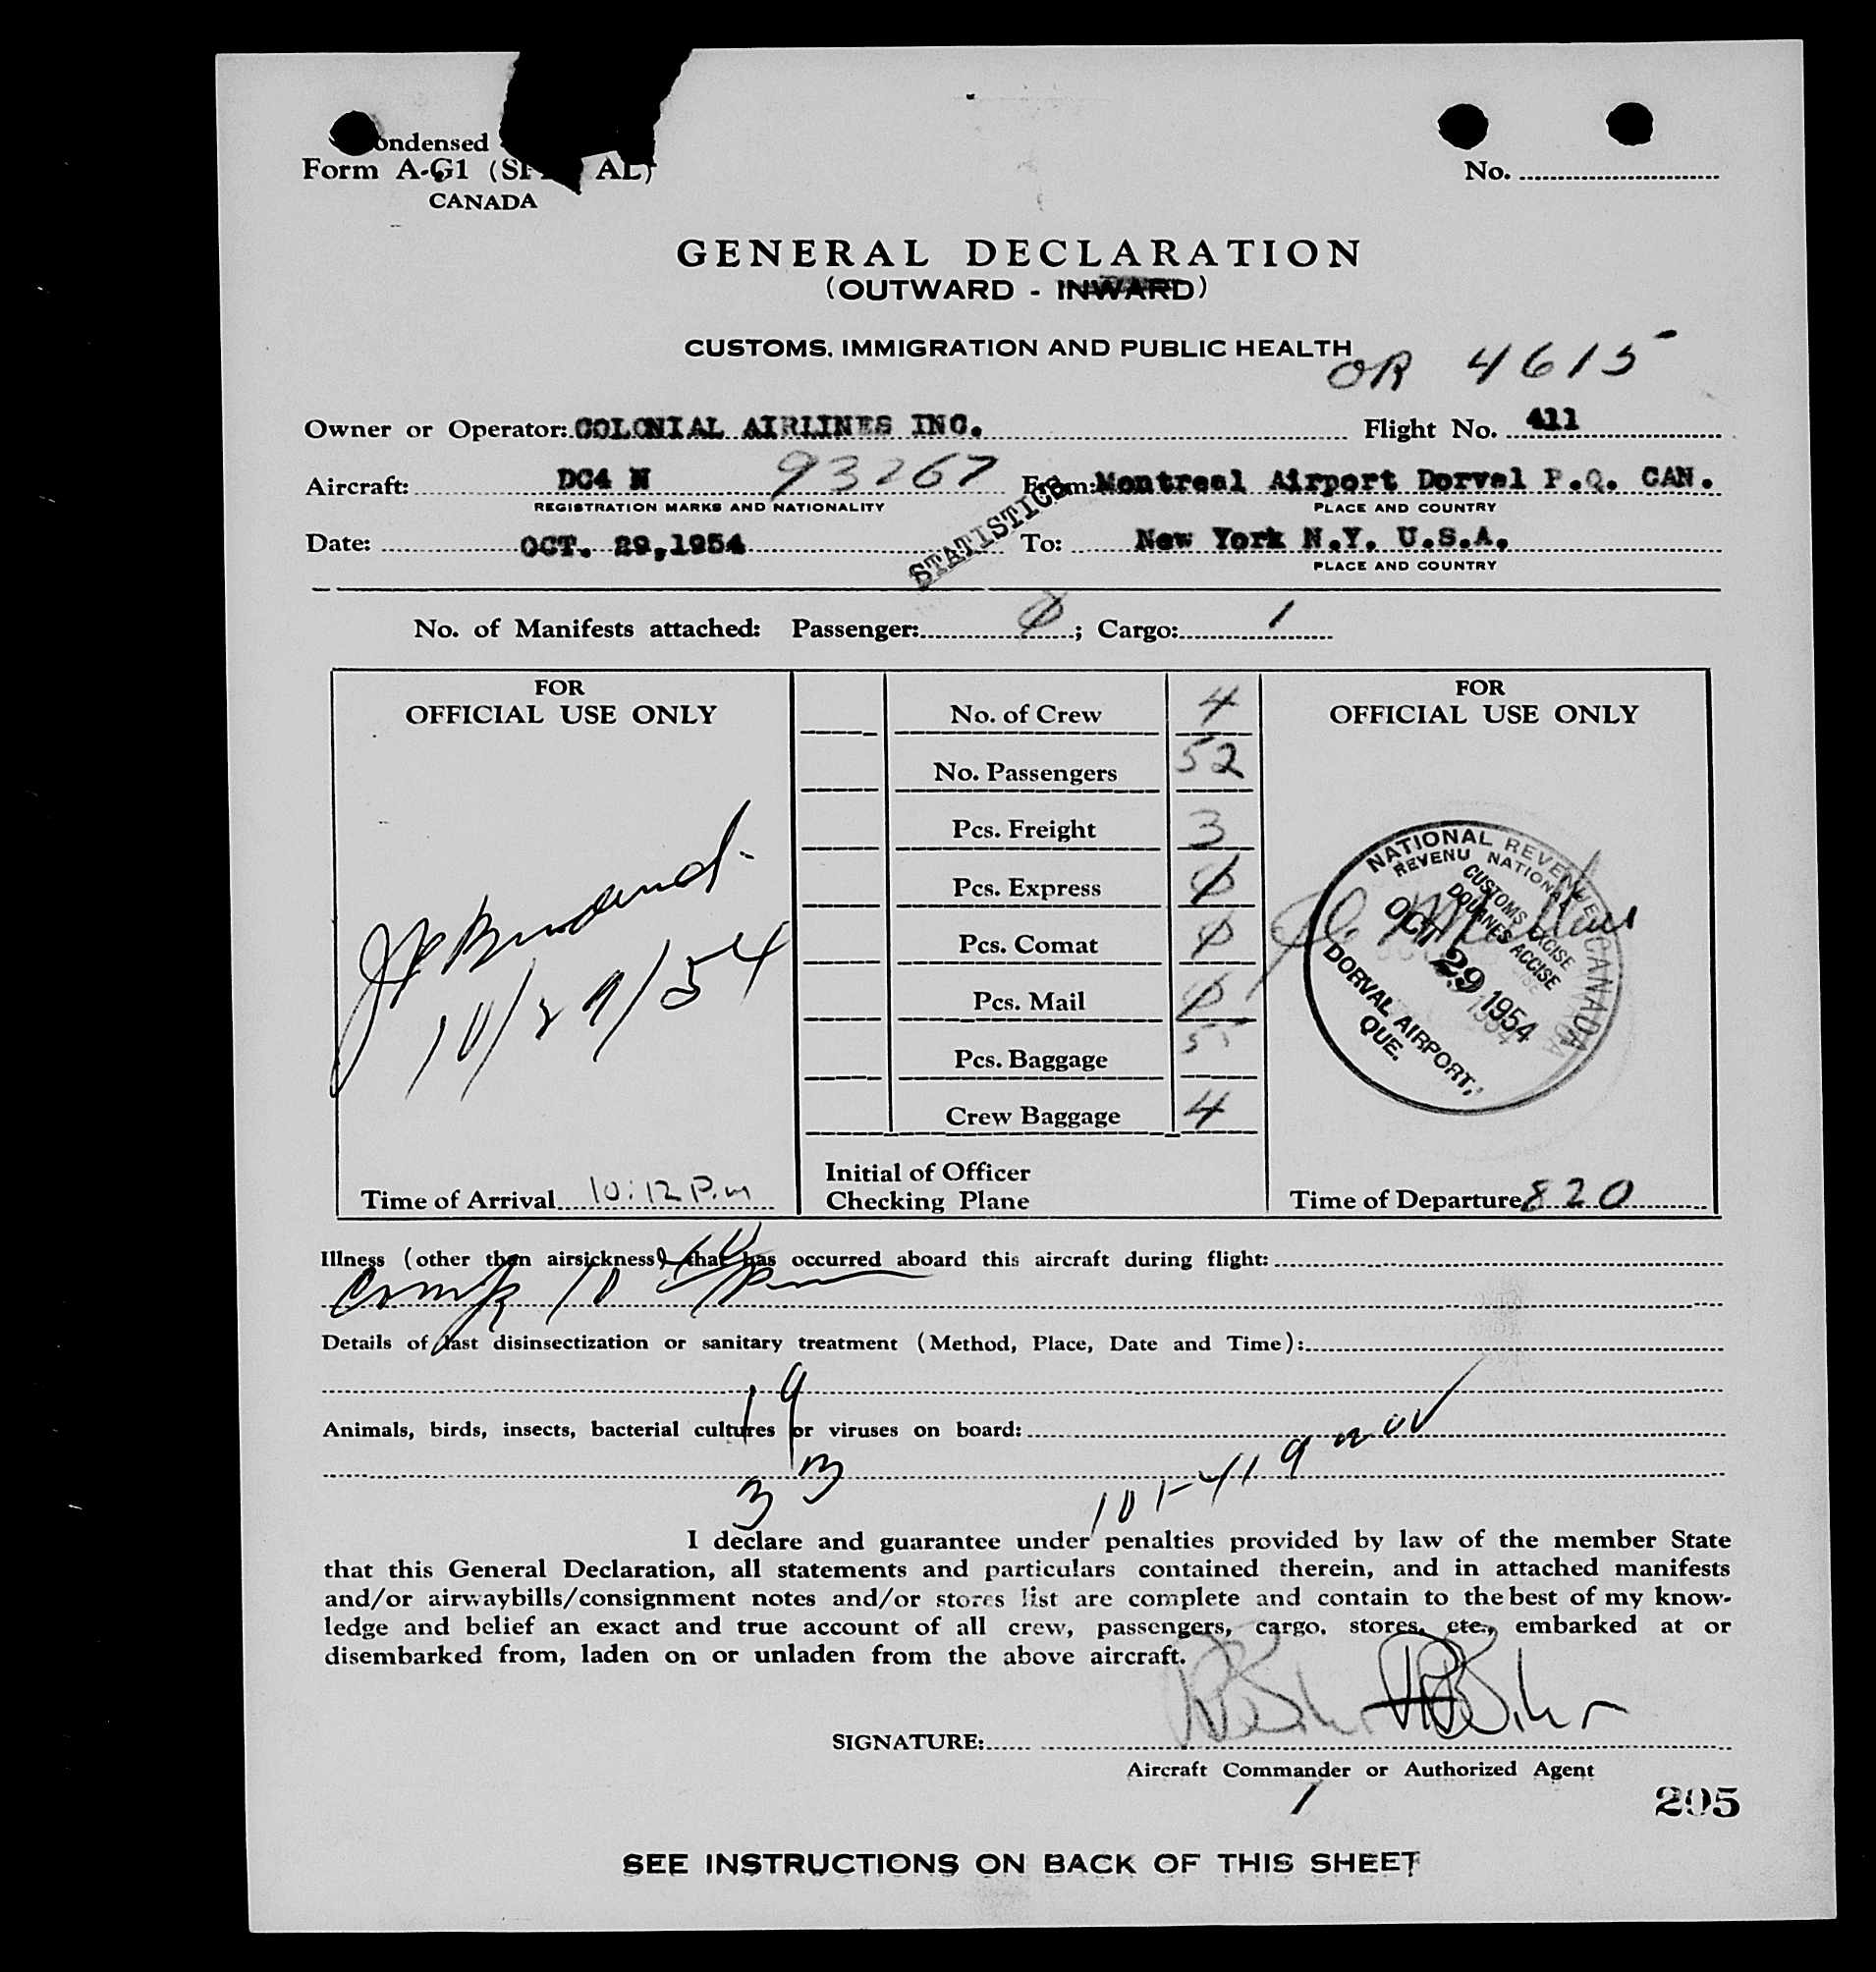 ondensed
Form A-G1 (SP AL)
CANADA
No.
GENERAL DECLARATION
(OUTWARD - INWARD)
CUSTOMS, IMMIGRATION AND PUBLIC HEALTH
OR 4615
Owner or Operator: COLONIAL AIRLINES INC. Flight No. 411
Aircraft: DC4 N 93267 From: Montreal Airport Dorval P.Q. CAN.
REGISTRATION MARKS AND NATIONALITY PLACE AND COUNTRY
STATISTICS
Date: OCT. 29,1954 To: New York N.Y. U.S.A.
PLACE AND COUNTRY
No. of Manifests attached: Passenger: 0; Cargo: 1
FOR
OFFICIAL USE ONLY
10/29/54
Time of Arrival 10:12 P.m
No. of Crew 4
No. Passengers 52
Pcs. Freight 3
Pcs. Express 0
Pcs. Comat 0
Pcs. Mail 0
Pcs. Baggage
Crew Baggage 4
Initial of Officer
Checking Plane
FOR
OFFICIAL USE ONLY
NATIONAL REVENUE CANADA
REVENU NATIONAL
CUSTOMS EXCISE
DOUANES ACCISE
OCT 29 1954
DORVAL AIRPORT,
QUE.
Time of Departure 820
Illness (other than airsickness) that has occurred aboard this aircraft during flight:
Details of last disinsectization or sanitary treatment (Method, Place, Date and Time):
19
Animals, birds, insects, bacterial cultures or viruses on board:
33
101-419 nov
I declare and guarantee under penalties provided by law of the member State
that this General Declaration, all statements and particulars contained therein, and in attached manifests
and/or airwaybills/consignment notes and/or stores list are complete and contain to the best of my know-
ledge and belief an exact and true account of all crew, passengers, cargo, stores, etc., embarked at or
disembarked from, laden on or unladen from the above aircraft.
SIGNATURE:
Aircraft Commander or Authorized Agent
1
295
SEE INSTRUCTIONS ON BACK OF THIS SHEET